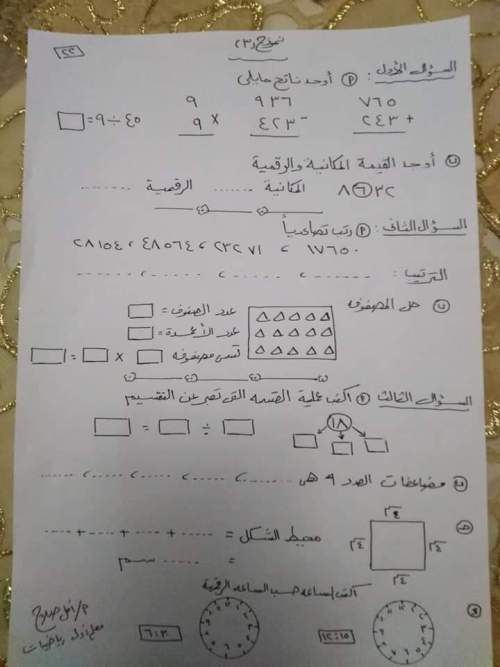 ٢٢
نموذج (٣)
السؤال الأول : (أ) أوجد ناتج مايلى
٧٦٥ ٩٣٦ ٩
٢٤٣ + ٤٢٣ - ٩ × ٤٥ ÷ ٩ =
(ب) أوجد القيمة المكانية والرقمية
٨٦٣٢ المكانية ....... الرقمية .......
السؤال الثانى : (أ) رتب تصاعدياً
١٧٦٥٠ ، ٢٣٢٧١ ، ٤٨٥٦٤ ، ٢٨١٥٤
الترتيب : ....... ، ....... ، ....... ، .......
(ب) حل المصفوفه
عدد الصفوف =
عدد الأعمدة =
تسمى مصفوفه × =
السؤال الثالث (أ) اكتب عملية القسمه التى تعبر عن التقسيم
١٨
÷ =
(ب) مضاعفات العدد ٩ هى ..... ، ..... ، ..... ، ..... ، .....
(جـ) محيط الشكل = ..... + ..... + ..... + .....
= ..... سم
(د) اكتب الساعه حسب الساعه الرقمية
١٢:١٥
٦:٣٠
معلم أول رياضيات